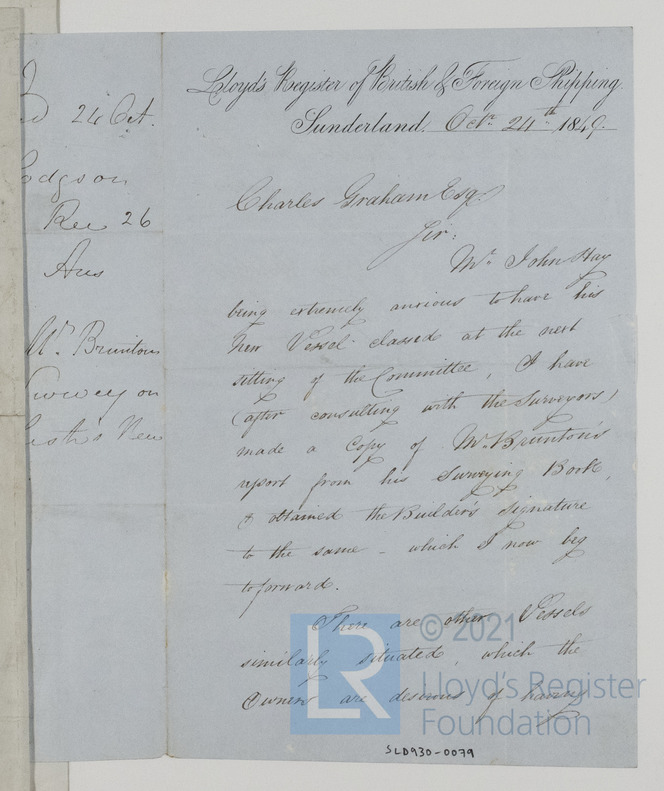 24 Oct.
odgson
Rec 26
Ans
Mr. Bruntons
Survey on
New
Lloyd's Register of British & Foreign Shipping.
Sunderland, Octr. 24th 1849.
Charles Graham Esq.
Sir:
Mr. John Hay
being extremely anxious to have his
New Vessel classed at the next
sitting of the Committee, I have
(after consulting with the Surveyors)
made a Copy of Mr. Brunton's
report from his Surveying Book,
& obtained the Builder's signature
to the same - which I now beg
to forward.
There are other Vessels
similarly situated, which the
Owners are desirous of having
LR
© 2021
Lloyd's Register
Foundation
SLD930-0079